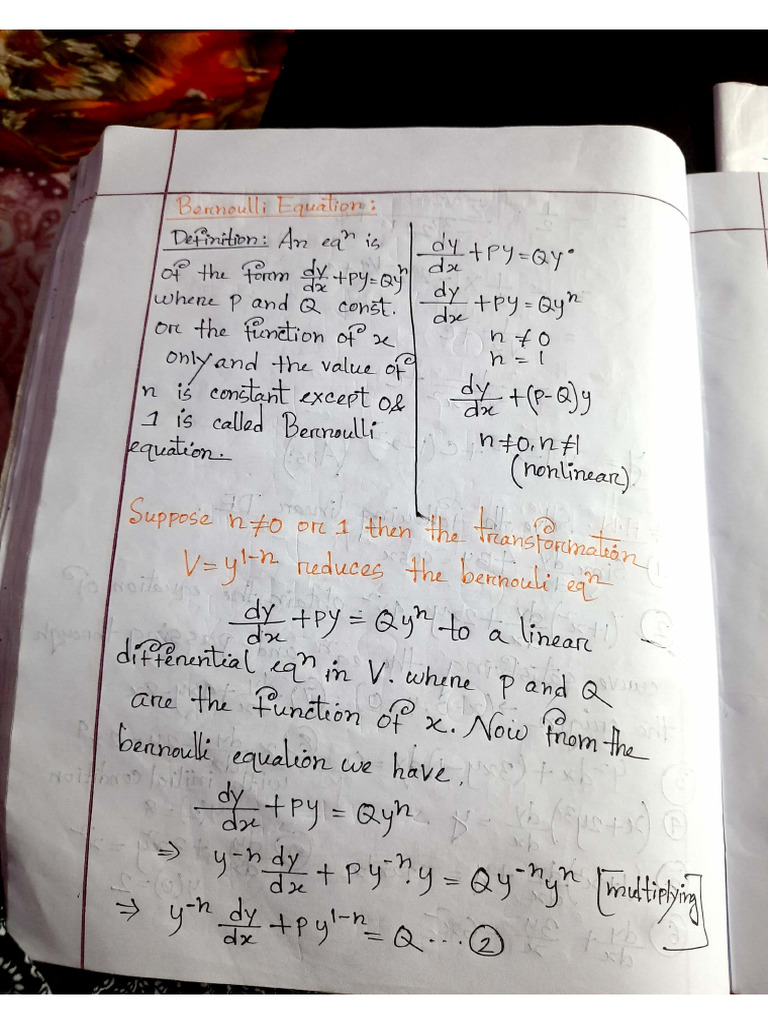 Bernoulli Equation:
Definition: An eqⁿ is
of the form dy/dx + py = Qyⁿ
where p and Q const.
or the function of x
only and the value of
n is constant except 0 &
1 is called Bernoulli
equation.
dy/dx + py = Qy°
dy/dx + py = Qyⁿ
n ≠ 0
n = 1
dy/dx + (p-Q)y
n ≠ 0, n ≠ 1
(nonlinear).
Suppose n ≠ 0 or 1 then the transformation
V = y¹⁻ⁿ reduces the bernouli eqⁿ
dy/dx + py = Qyⁿ to a linear
differential eqⁿ in V. where p and Q
are the function of x. Now from the
bernoulli equation we have,
dy/dx + py = Qyⁿ
⇒ y⁻ⁿ dy/dx + py⁻ⁿ.y = Qy⁻ⁿyⁿ [multiplying]
⇒ y⁻ⁿ dy/dx + py¹⁻ⁿ = Q ... ②